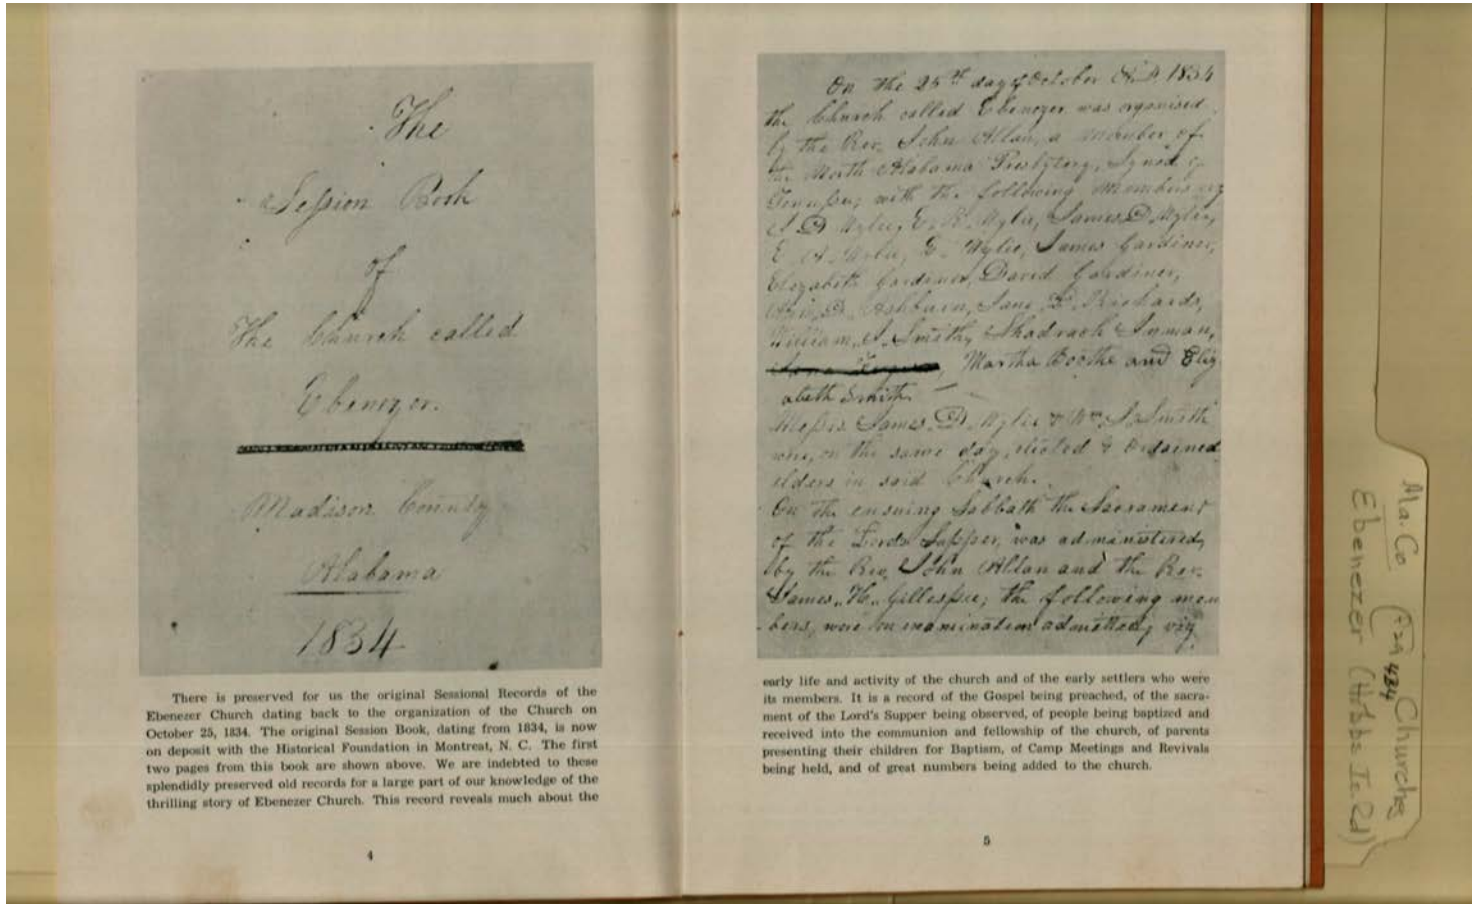 The
Session Book
of
The Church called
Ebenezer.
Madison County
Alabama
1834
There is preserved for us the original Sessional Records of the
Ebenezer Church dating back to the organization of the Church on
October 25, 1834. The original Session Book, dating from 1834, is now
on deposit with the Historical Foundation in Montreat, N. C. The first
two pages from this book are shown above. We are indebted to these
splendidly preserved old records for a large part of our knowledge of the
thrilling story of Ebenezer Church. This record reveals much about the
4
On the 25th day of October A.D. 1834
the Church called Ebenezer was organised
by the Rev. John Allan, a member of
the North Alabama Presbytery, Synod of
with the following members viz
Wylie, E. R. Wylie, James D. Wylie,
Wylie, Wylie, James Gardiner,
Elizabeth Gardiner, David Gardiner,
Ashburn, Jane Richards,
William J. Smith, Shadrach Inman,
Martha Boothe and Eliz
abeth Smith.
Messrs. James D. Wylie & Wm. J. Smith
were, on the same day, elected & ordained
elders in said Church.
On the ensuing Sabbath the Sacrament
of the Lords Supper, was administered,
by the Rev. John Allan and the Rev.
James H. Gillespie; the following mem
bers, were on examination admitted; viz
early life and activity of the church and of the early settlers who were
its members. It is a record of the Gospel being preached, of the sacra-
ment of the Lord's Supper being observed, of people being baptized and
received into the communion and fellowship of the church, of parents
presenting their children for Baptism, of Camp Meetings and Revivals
being held, and of great numbers being added to the church.
5
Ma. Co Churches
Ebenezer (Hobbs Is Rd)